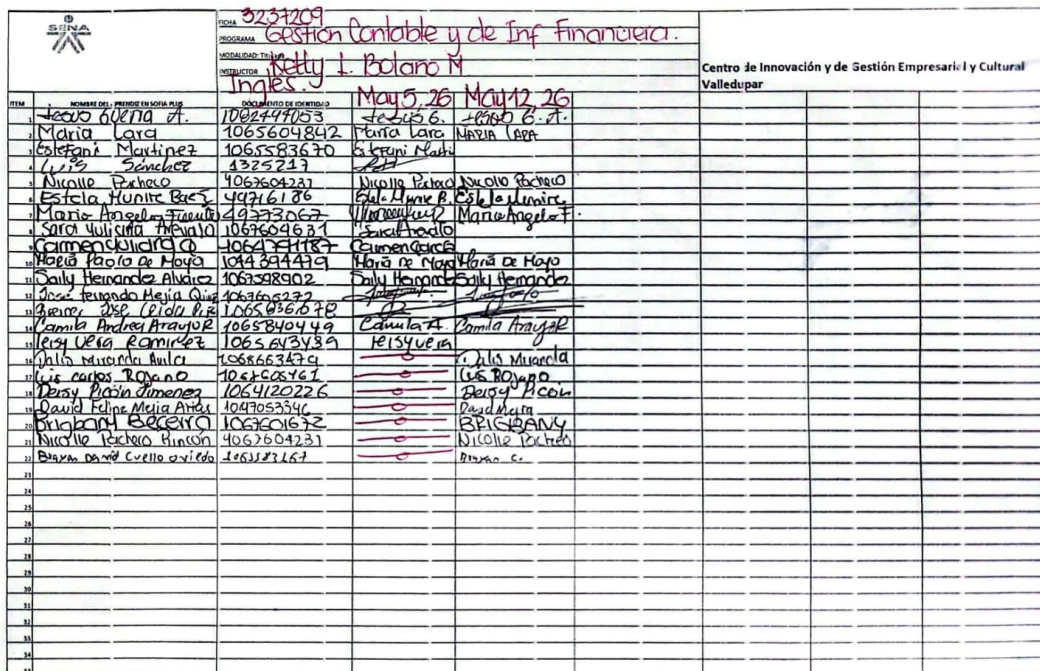 SENA
FICHA 3237209
PROGRAMA Gestión Contable y de Inf Financiera.
MODALIDAD: Titulada
INSTRUCTOR Ketty L. Bolano M
Ingles.
Centro de Innovación y de Gestión Empresarial y Cultural
Valledupar
ITEM NOMBRE DEL APRENDIZ EN SOFIA PLUS DOCUMENTO DE IDENTIDAD May 5, 26 May 12, 26
1 A. 1002497053 Jesus G.
2 Maria Lara 1065604842 Maria Lara MARIA LARA
3 Estefani Martinez 1065583670 Estefani
4 Luis Sánchez 1325217
5 Nicolle Pacheco 1067604231 Nicolle Pacheco Nicolle Pacheco
6 Estela Munire Baez 49716186 Estela Munire B. Estela Munire
7 Maria Angeles Fuentes 49773067 Maria Angeles F.
8 Sara Yuliana Arevalo 1067604631 Sara Arevalo
9 Carmen 1064791187 Carmen Garcia
10 Maria Paola De Moya 1044394479 Maria De Moya Maria De Moya
11 Saily Hernandez Alvarez 1067598902 Saily Hernandez Saily Hernandez
12 Jose fernando Mejia 1067605272
13 Jose 1065836078
14 Camila Andrea Araujo R 1065840449 Camila A. Camila Araujo R
15 leisy Vera Ramirez 1065643489 leisy vera
16 Dalis Miranda Avila 1068663479 Dalis Miranda
17 Luis carlos Royano Luis Royano
18 Deisy Picón Jimenez 1064120226 Deisy Picón
19 David Felipe Mejia Arias David Mejia
20 Brigbany Beceira 1067601672 BRIGBANY
21 Nicolle Pacheco Rincón 1067604231 Nicolle Pacheco
22 Brayan David Cuello oviedo Brayan C.
23
24
25
26
27
28
29
30
31
32
33
34